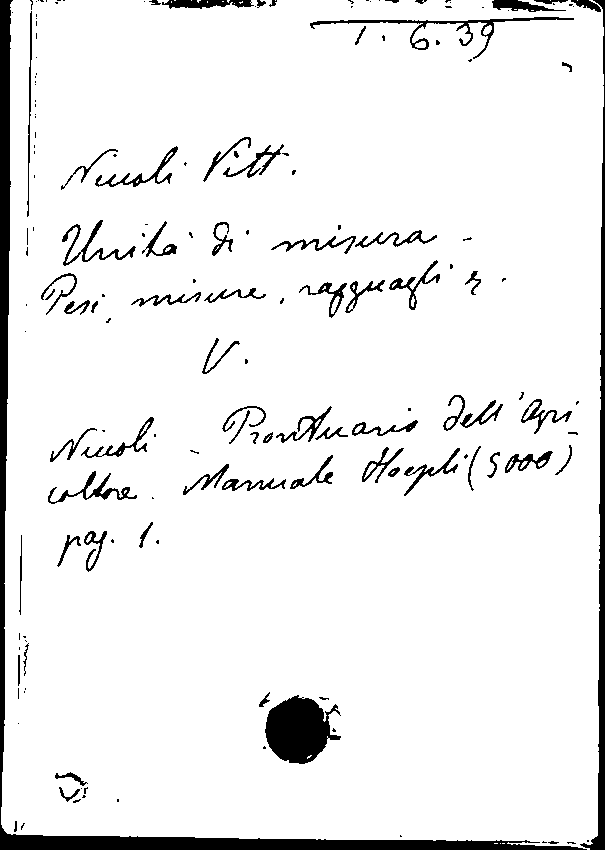 1. 6. 39
Niccoli Vitt.
Unità di misura -
Pesi, misure, ragguagli
V.
Niccoli - Prontuario dell'Agri-
coltore. Manuale Hoepli (5000)
pag. 1.